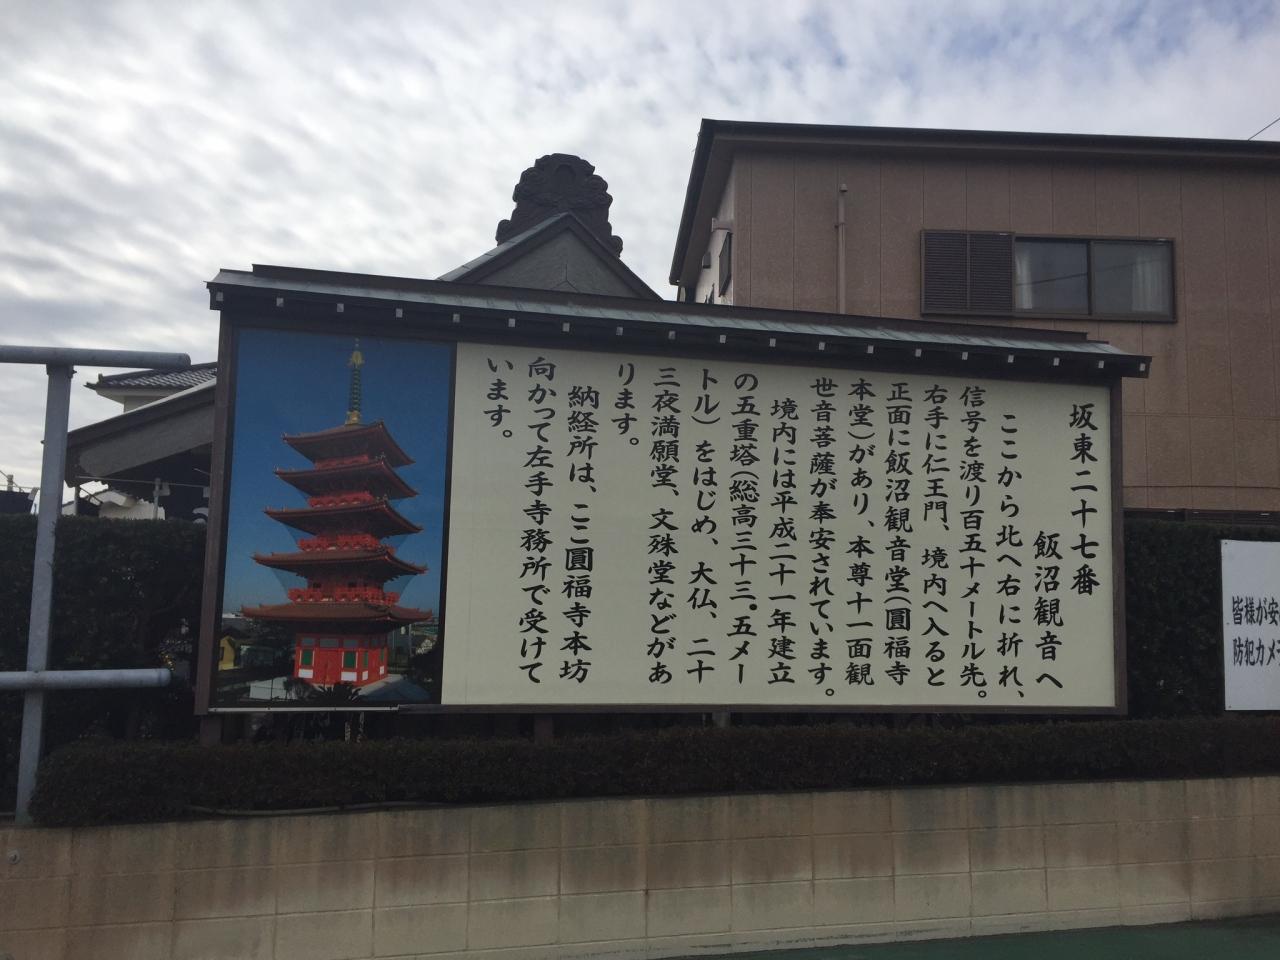 坂東二十七番
飯沼観音へ
ここから北へ右に折れ、
信号を渡り百五十メートル先。
右手に仁王門、境内へ入ると
正面に飯沼観音堂(圓福寺
本堂)があり、本尊十一面観
世音菩薩が奉安されています。
境内には平成二十一年建立
の五重塔(総高三十三・五メー
トル)をはじめ、大仏、二十
三夜満願堂、文殊堂などがあ
ります。
納経所は、ここ圓福寺本坊
向かって左手寺務所で受けて
います。
皆様が安
防犯カメ